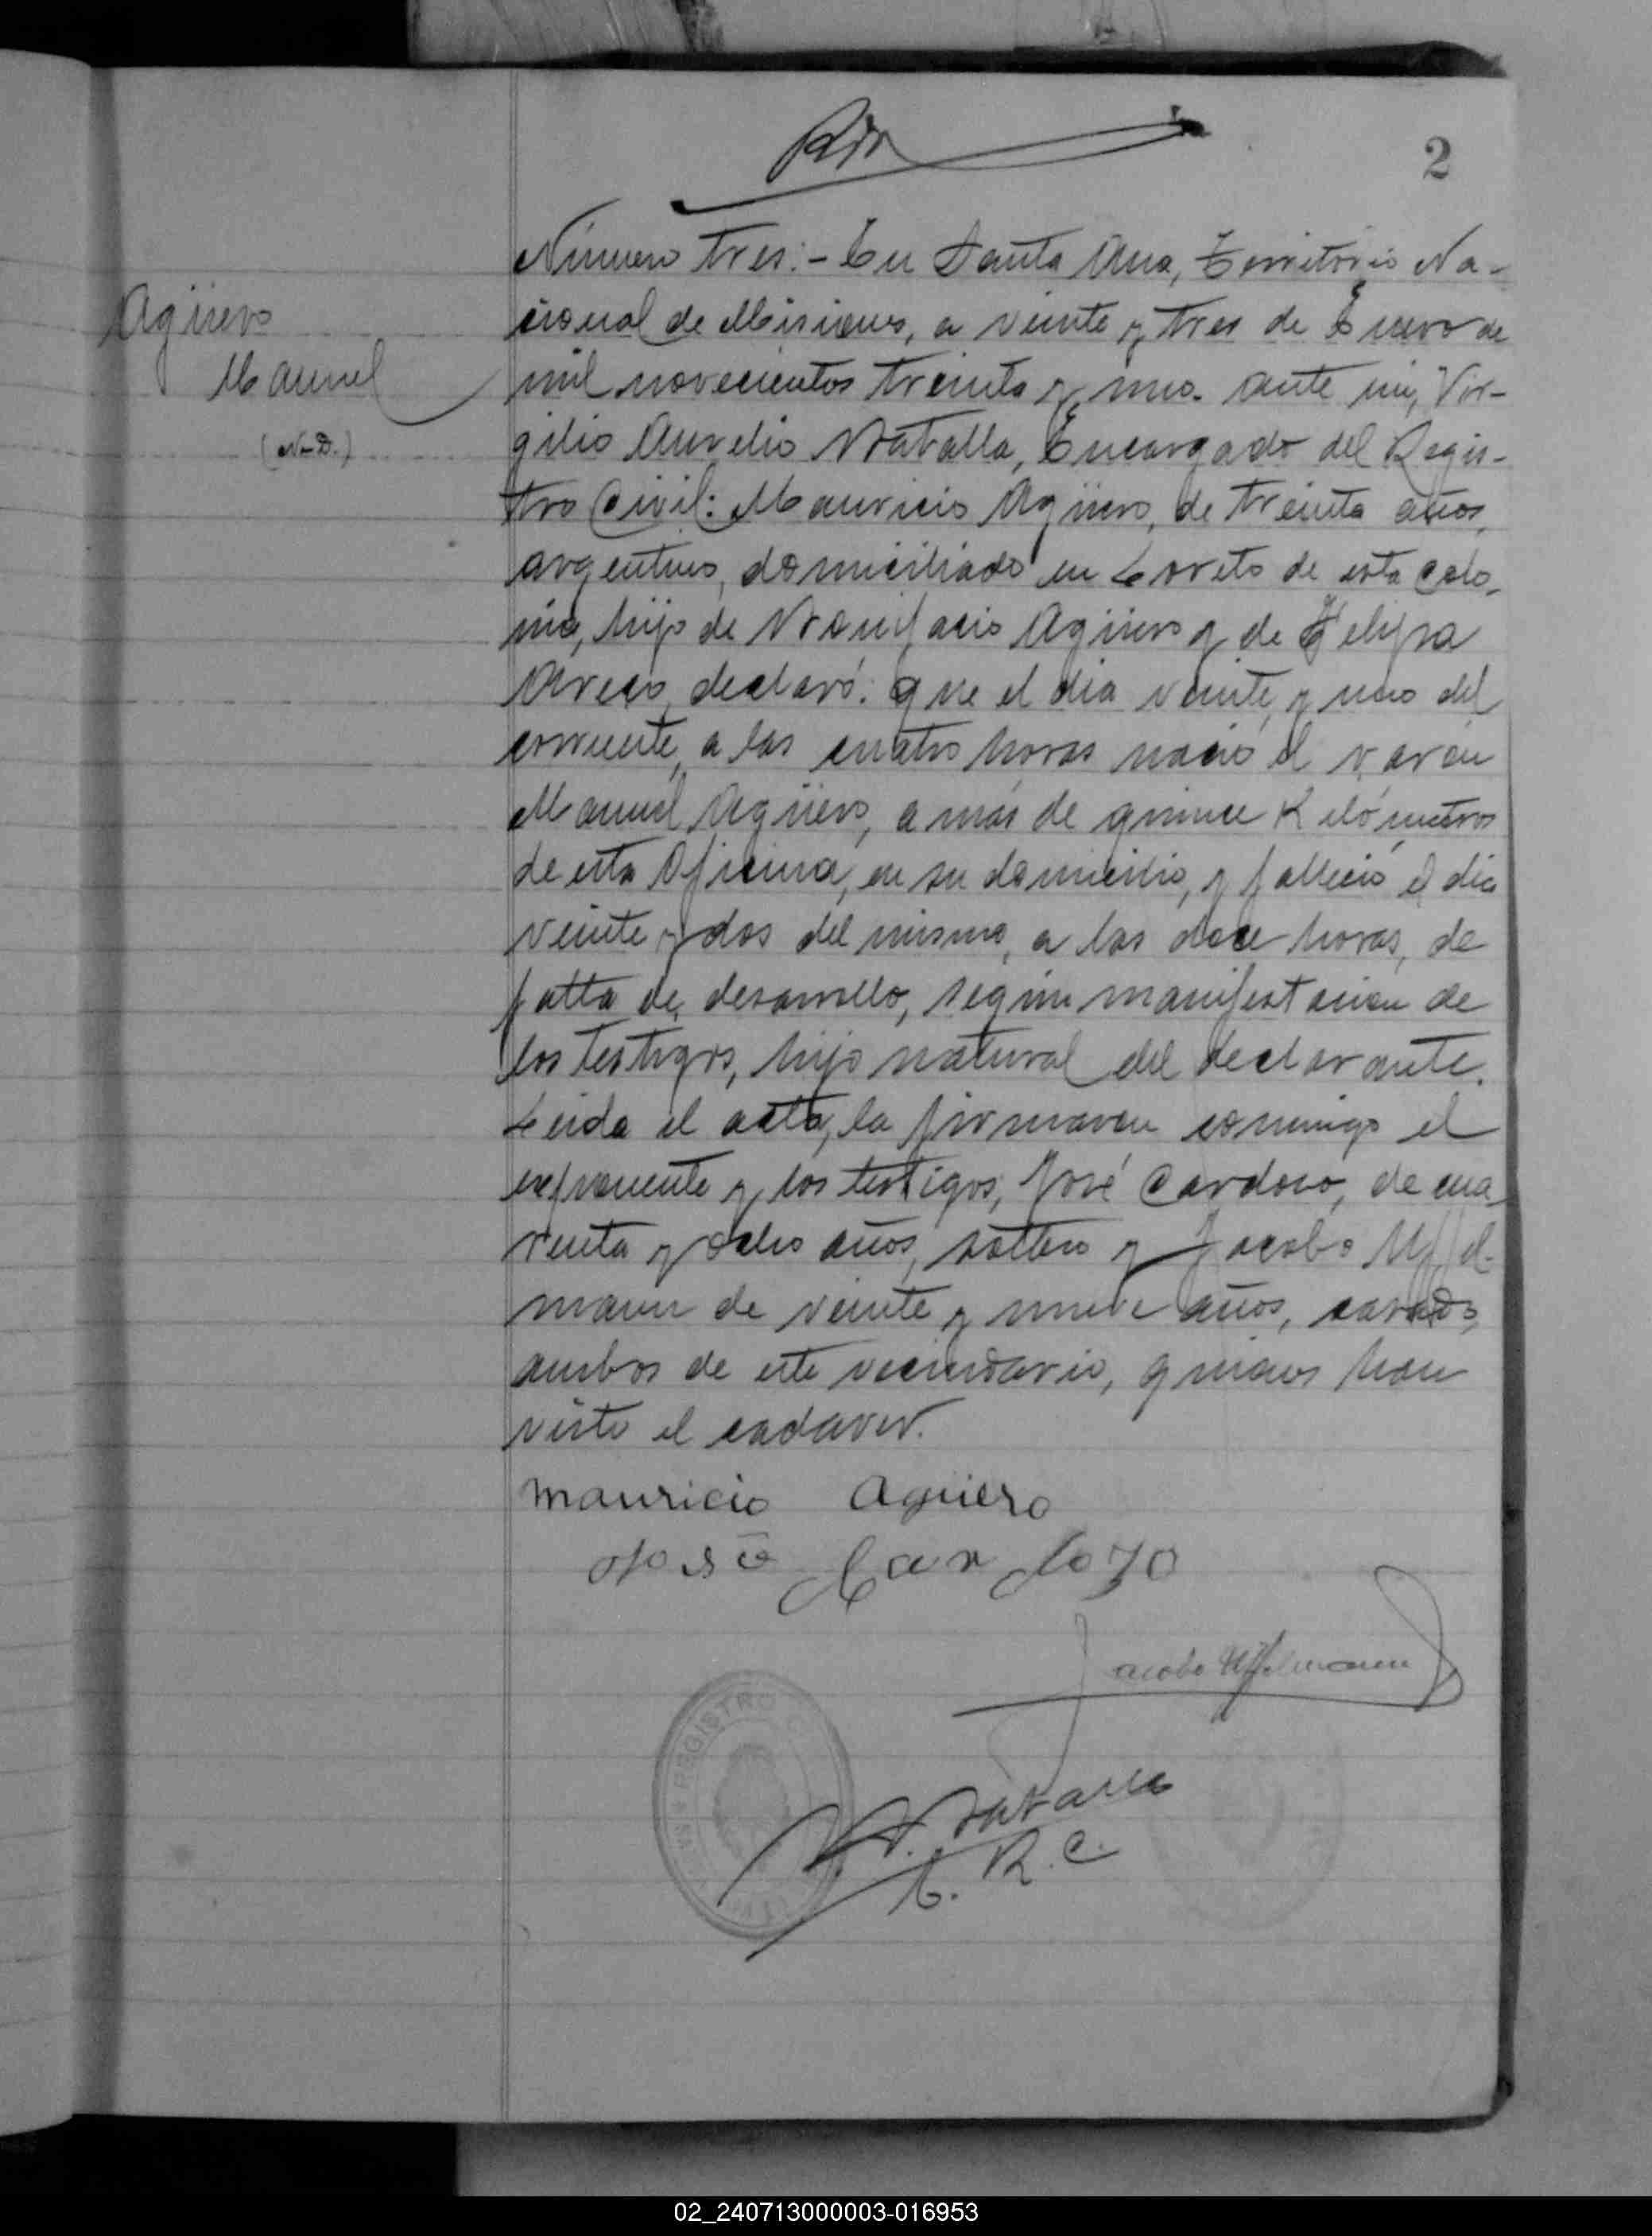 2
Agüero
Manuel
(N-D.)
Número tres:- En Santa Ana, Territorio Na-
cional de Misiones, a veinte y tres de Enero de
mil novecientos treinta y uno. ante mi, Vir-
gilio Aurelio Batalla, Encargado del Regis-
tro Civil: Mauricio Agüero, de treinta años,
argentino, domiciliado en Loreto de esta colo-
nia, hijo de Bonifacio Agüero y de Felipa
declaró: que el dia veinte y uno del
corriente, a las cuatro horas nació el varón
Manuel Agüero, a más de quince Kilómetros
de esta Oficina, en su domicilio, y falleció el dia
veinte y dos del mismo, a las doce horas, de
falta de desarrollo, según manifestacion de
los testigos, hijo natural del declarante.
Leida el acta, la firmaron conmigo el
exponente y los testigos, José Cardozo, de cua-
renta y ocho años, soltero y Jacobo Uffel-
mann de veinte y nueve años, casado,
ambos de este vecindario, quienes han
visto el cadaver.
Mauricio Aguero
José Cardozo
Jacobo Uffelmann
REGISTRO
V. A. Batalla
E. R. C.
02_240713000003-016953